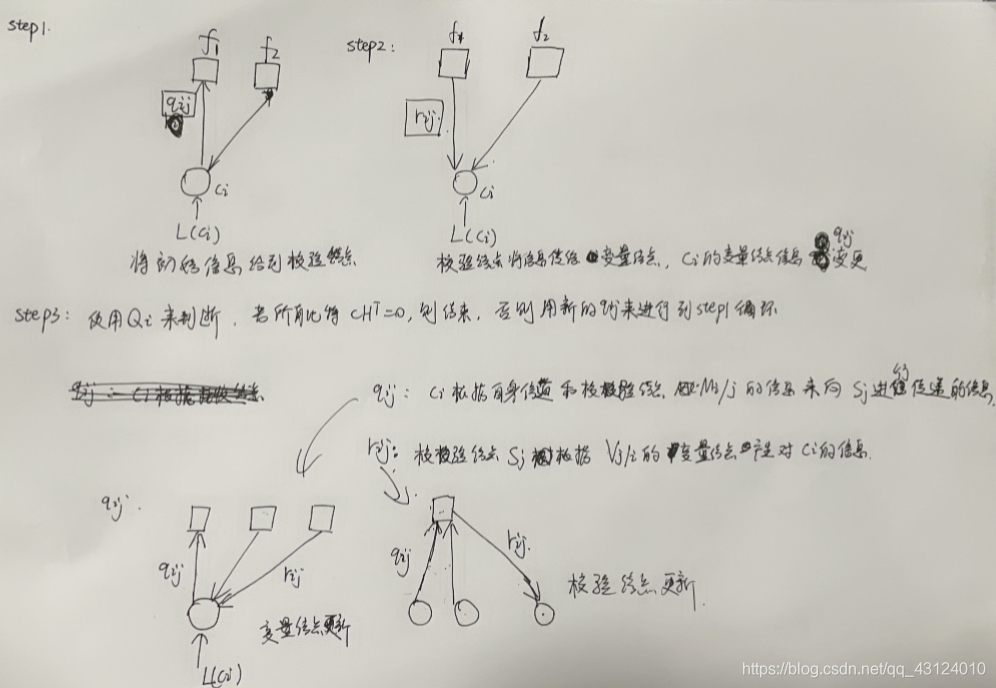 step1.
f1
f2
qij
ci
L(ci)
将初始信息给到校验结点
step2:
f1
f2
rij
ci
L(ci)
校验结点将信息传给变量结点, ci的变量结点信息qij变更
step3: 使用Qi来判断, 若所有比特 cHᵀ=0, 则结束, 否则用新的qij来进行到step1循环
qij: ci根据自身信道和校验结点Mi/j的信息来向Sj进行传递的信息.
rij: 校验结点Sj根据Vj/i的变量结点产生对ci的信息.
qij.
qij
rij
L(ci)
变量结点更新
qij
rij.
校验结点更新.
https://blog.csdn.net/qq_43124010